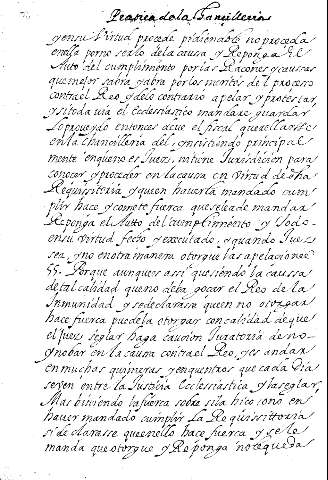 Practica de la Chancilleria
y en su Virtud procede pidale no proceda
en ella por no ser lo de la causa, y Reponga el
Auto del cumplimento por las Raçones y caussas
que mejor sabra, y abra por los meritos del proceso
contra el Reo, y de lo contrario apelar, y protestar,
y si todavia el ecclesiastico mandare guardar
lo proveydo entonces deve el fiscal querellarse
en la Chancilleria del, insistiendo principal
mente en que no es Juez, ni tiene Jurisdicion para
conocer y proceder en la causa en virtud de dha
Requissitoria, y quien haverla mandado cum
plir hace, y comete fuerca que se le a de mandar
Reponga el Auto del cumplimiento y todo
en su virtud fecho y executado, y quando Juez
sea, y no en otra manera otorgue las apelaciones
55. Porque aunque es assi que siendo la caussa
de tal calidad que no deba goçar el Reo de la
Inmunidad y se declarara que en no otorgar
hace fuerca puedela otorgar con calidad de que
el Juez seglar haga caucion Juratoria de no
ynobar en la causa contra el Reo, y es andar
en muchos quimeras, y enquentros que cada dia
se ven entre la Justicia Ecclesiastica y la seglar,
Mas biniendo la fuerca sobre si la hiço o no en
haver mandado cumplir la Requissittoria
si declarasse que en ello hace fuerca, y se le
manda que otorgue y Reponga no te quedas